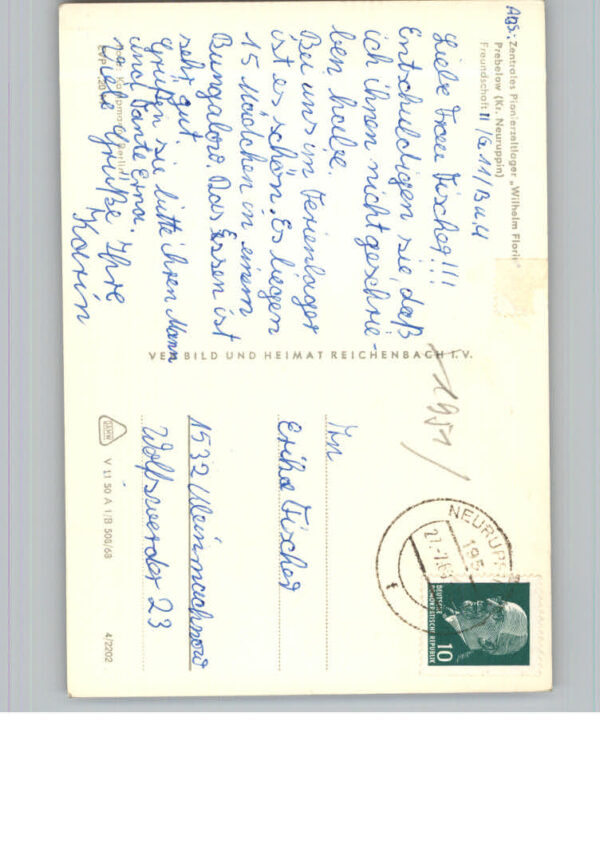 Abs: Zentrales Pionierzeltlager „Wilhelm Florin"
Prebelow (Kr. Neuruppin)
Freundschaft II/G 11/Bu 4
Liebe Frau Fischer!!!
Entschuldigen sie, daß
ich ihnen nicht geschrie-
ben habe.
Bei uns im Ferienlager
ist es schön. Es liegen
15 Mädchen in einem
Bungalow. Das Essen ist
sehr gut
Grüßen sie bitte ihren Mann
und Tante Erna.
Viele Grüße Ihre
Karin
VEB BILD UND HEIMAT REICHENBACH I. V.
1951
NEURUPPIN
195
27.-7.6
DEUTSCHE
DEMOKRATISCHE REPUBLIK
10
An
Erika Fischer
1532 Kleinmachnow
Wolfswerder 23
V 11 50 A 1/B 508/68
4/2202